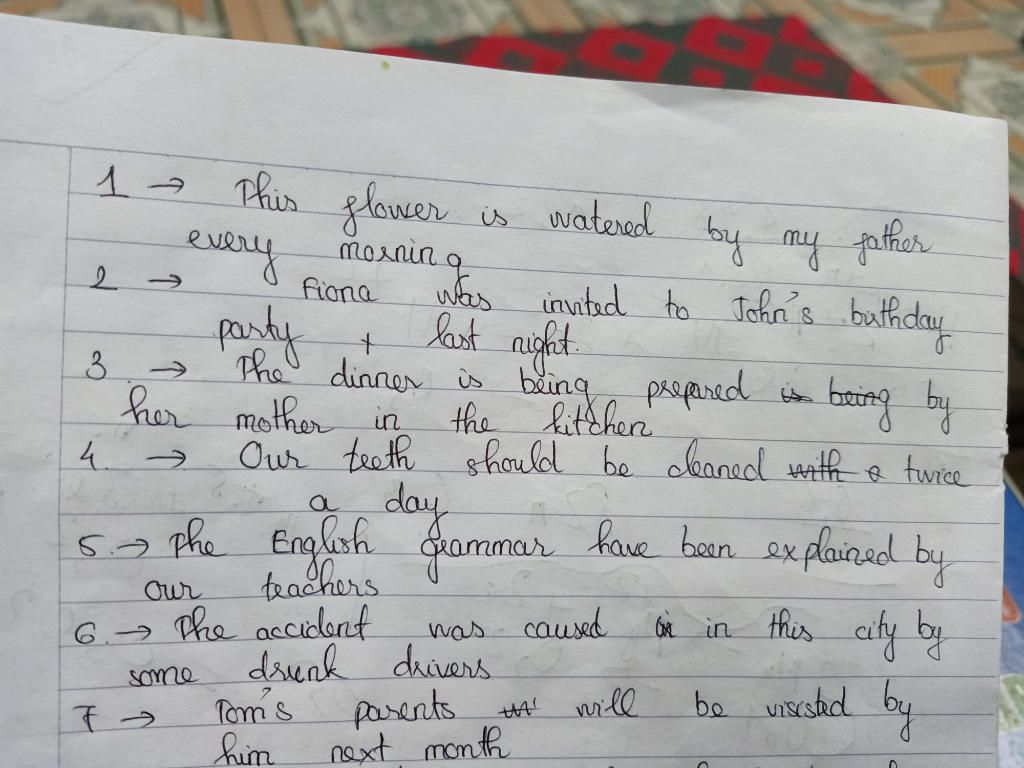 1 → This flower is watered by my father
every morning
2 → Fiona was invited to John's buthday
party + last night.
3 → The dinner is being prepared is being by
her mother in the kitchen
4. → Our teeth should be cleaned with a twice
a day
5. → The English grammar have been explained by
our teachers
6. → The accident was caused in in this city by
some drunk drivers
7 → Tom's parents will be viscsted by
him next month